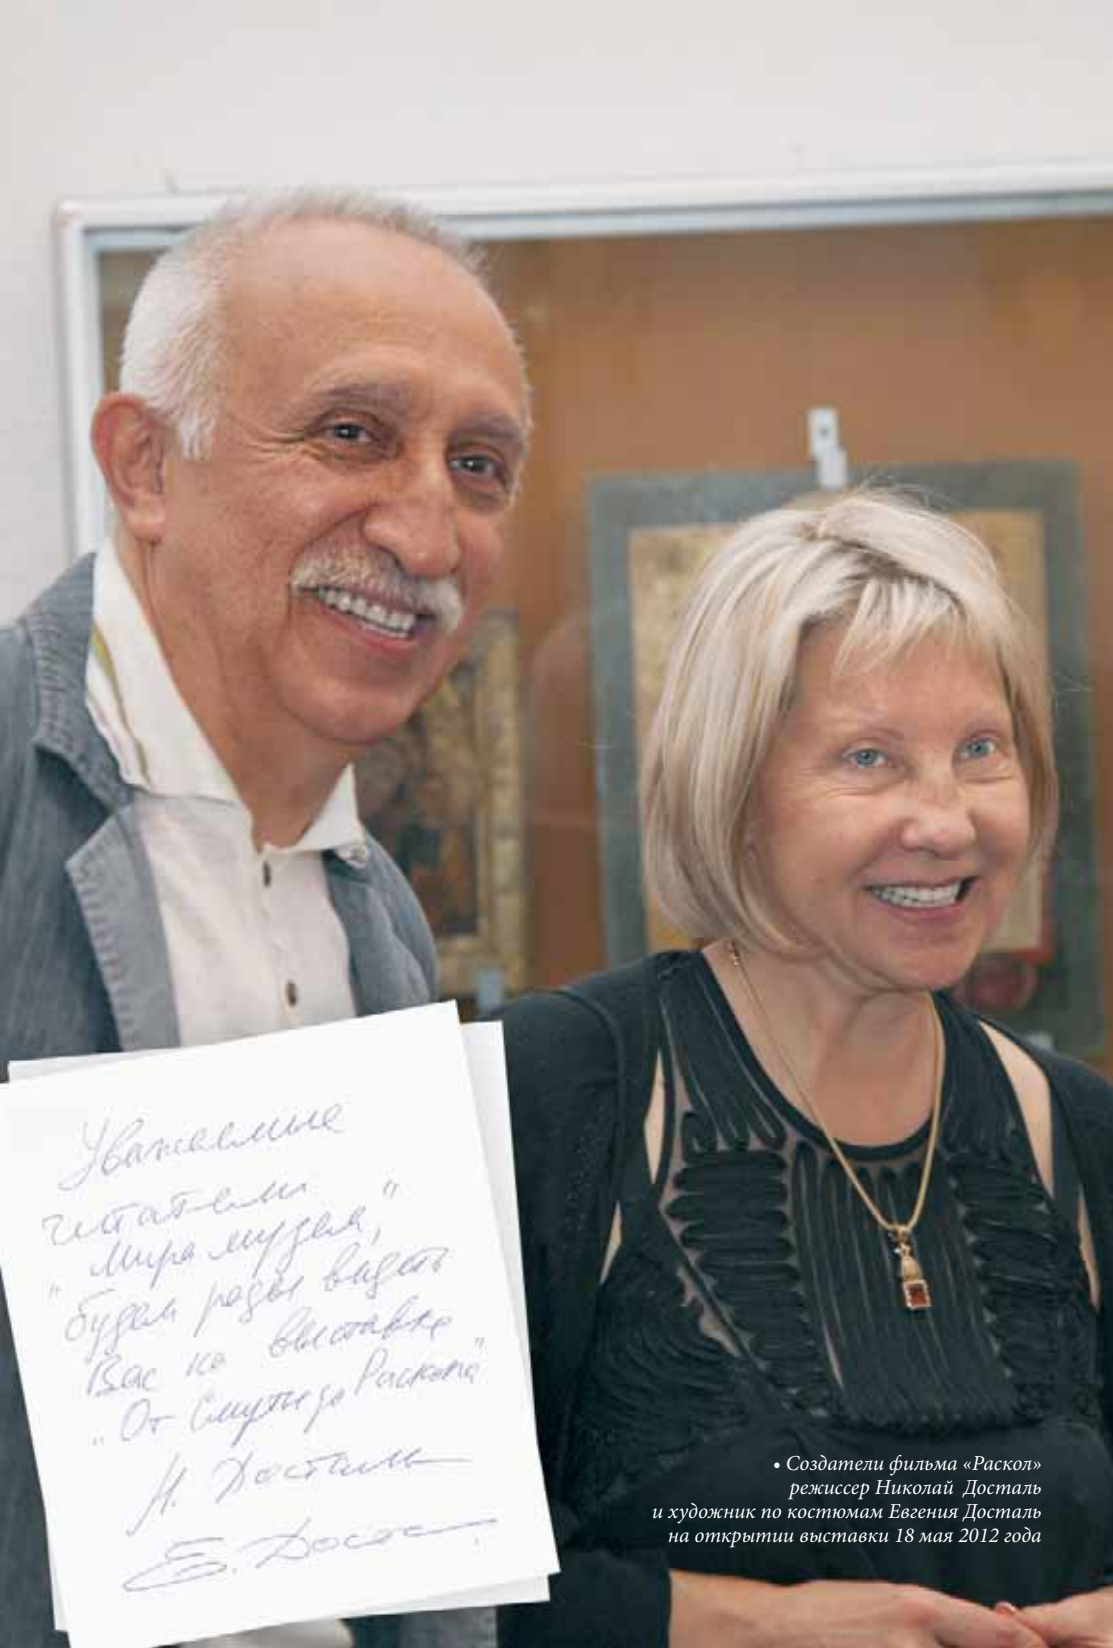 Уважаемые
читатели
"Мира музея",
будем рады видеть
Вас на выставке
"От Смуты до Раскола"
Н. Досталь
Е. Досталь
• Создатели фильма «Раскол»
режиссер Николай Досталь
и художник по костюмам Евгения Досталь
на открытии выставки 18 мая 2012 года